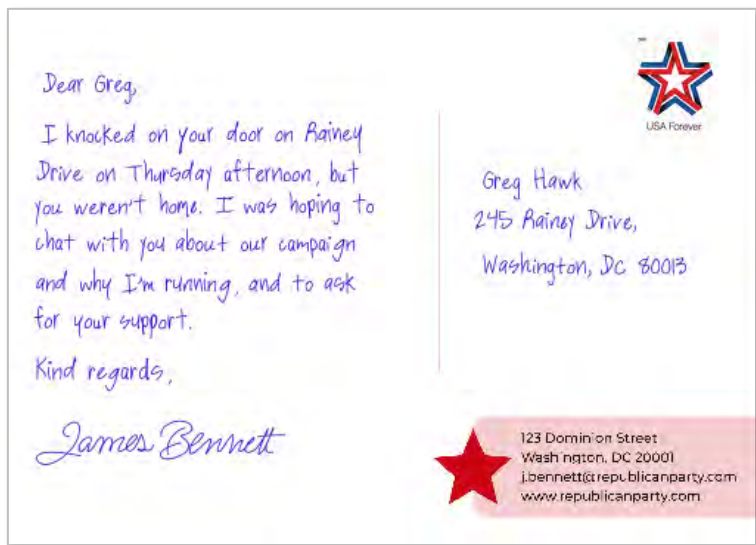 Dear Greg,
I knocked on your door on Rainey
Drive on Thursday afternoon, but
you weren't home. I was hoping to
chat with you about our campaign
and why I'm running, and to ask
for your support.
Kind regards,
James Bennett
USA Forever
Greg Hawk
245 Rainey Drive,
Washington, DC 80013
123 Dominion Street
Washington, DC 20001
j.bennett@republicanparty.com
www.republicanparty.com